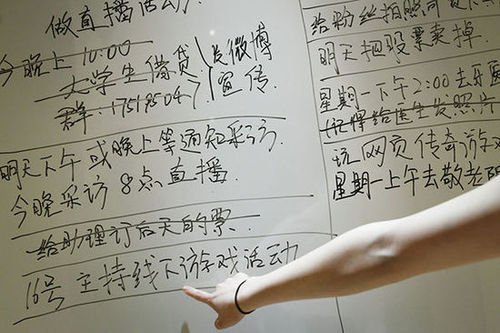 做直播活动
今晚上10:00
大学生借贷
群:1751850
发微博
宣传
明天下午或晚上等通知采访
今晚采访 8点直播
给助理订后天的票
16号 主持线下游戏活动
给粉丝拍照
明天把股票卖掉
星期一下午2:00去牙医
(记得给医生发照片
玩网页传奇游戏
星期一上午去敬老院